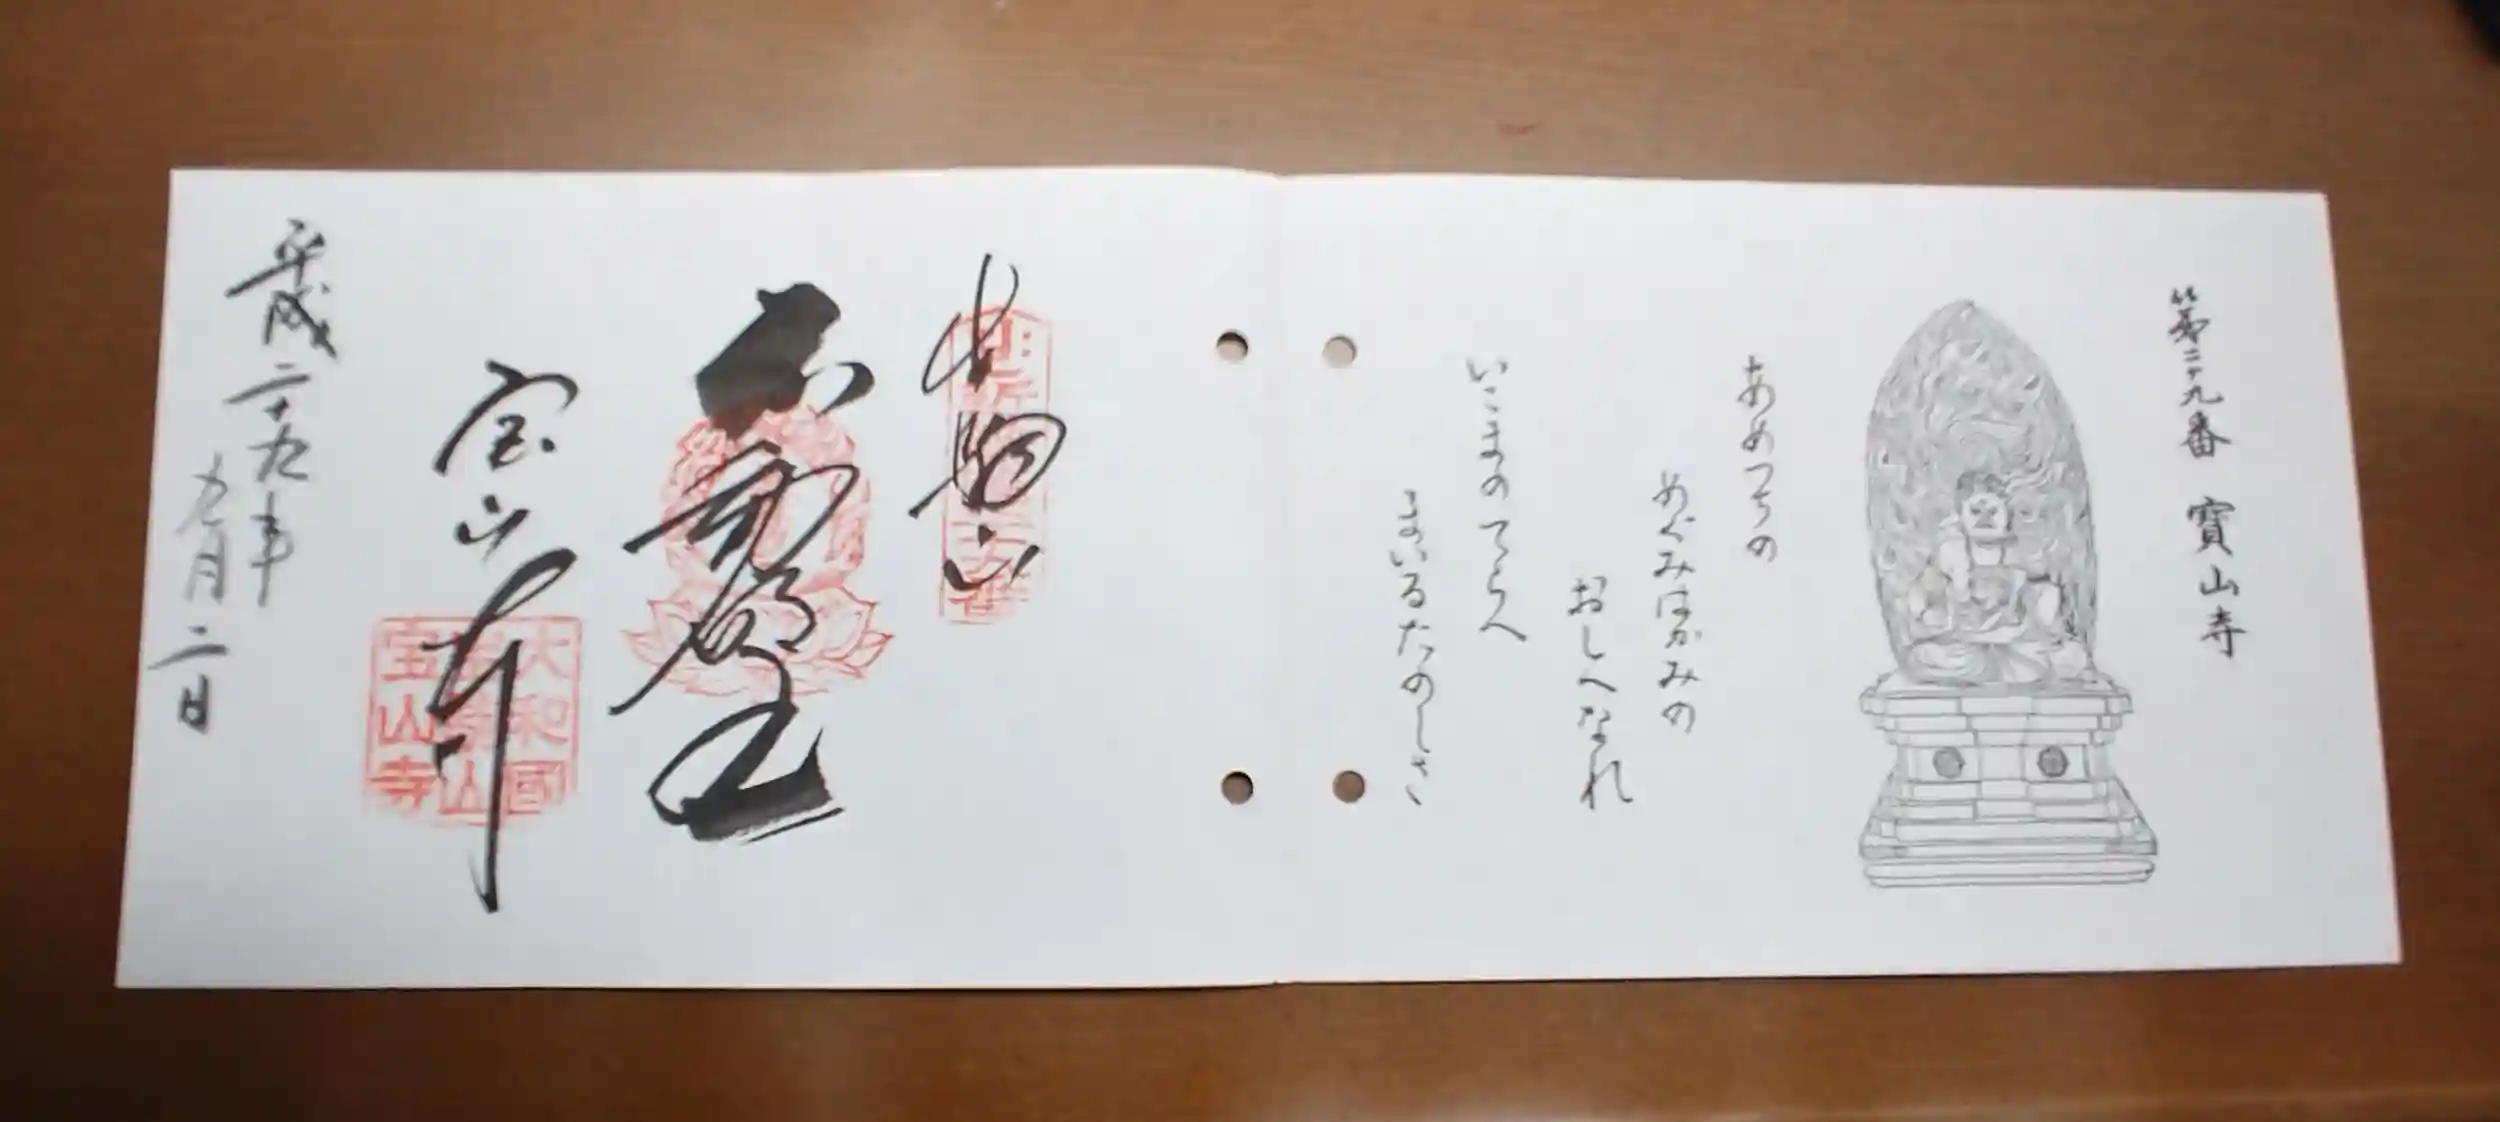 第二十九番 寶山寺
あめつちの
めぐみはかみの
おしへなれ
いこまのてらへ
まいるたのしさ
生駒山
宝山寺
大和國
宝山寺
平成二十九年
九月二日